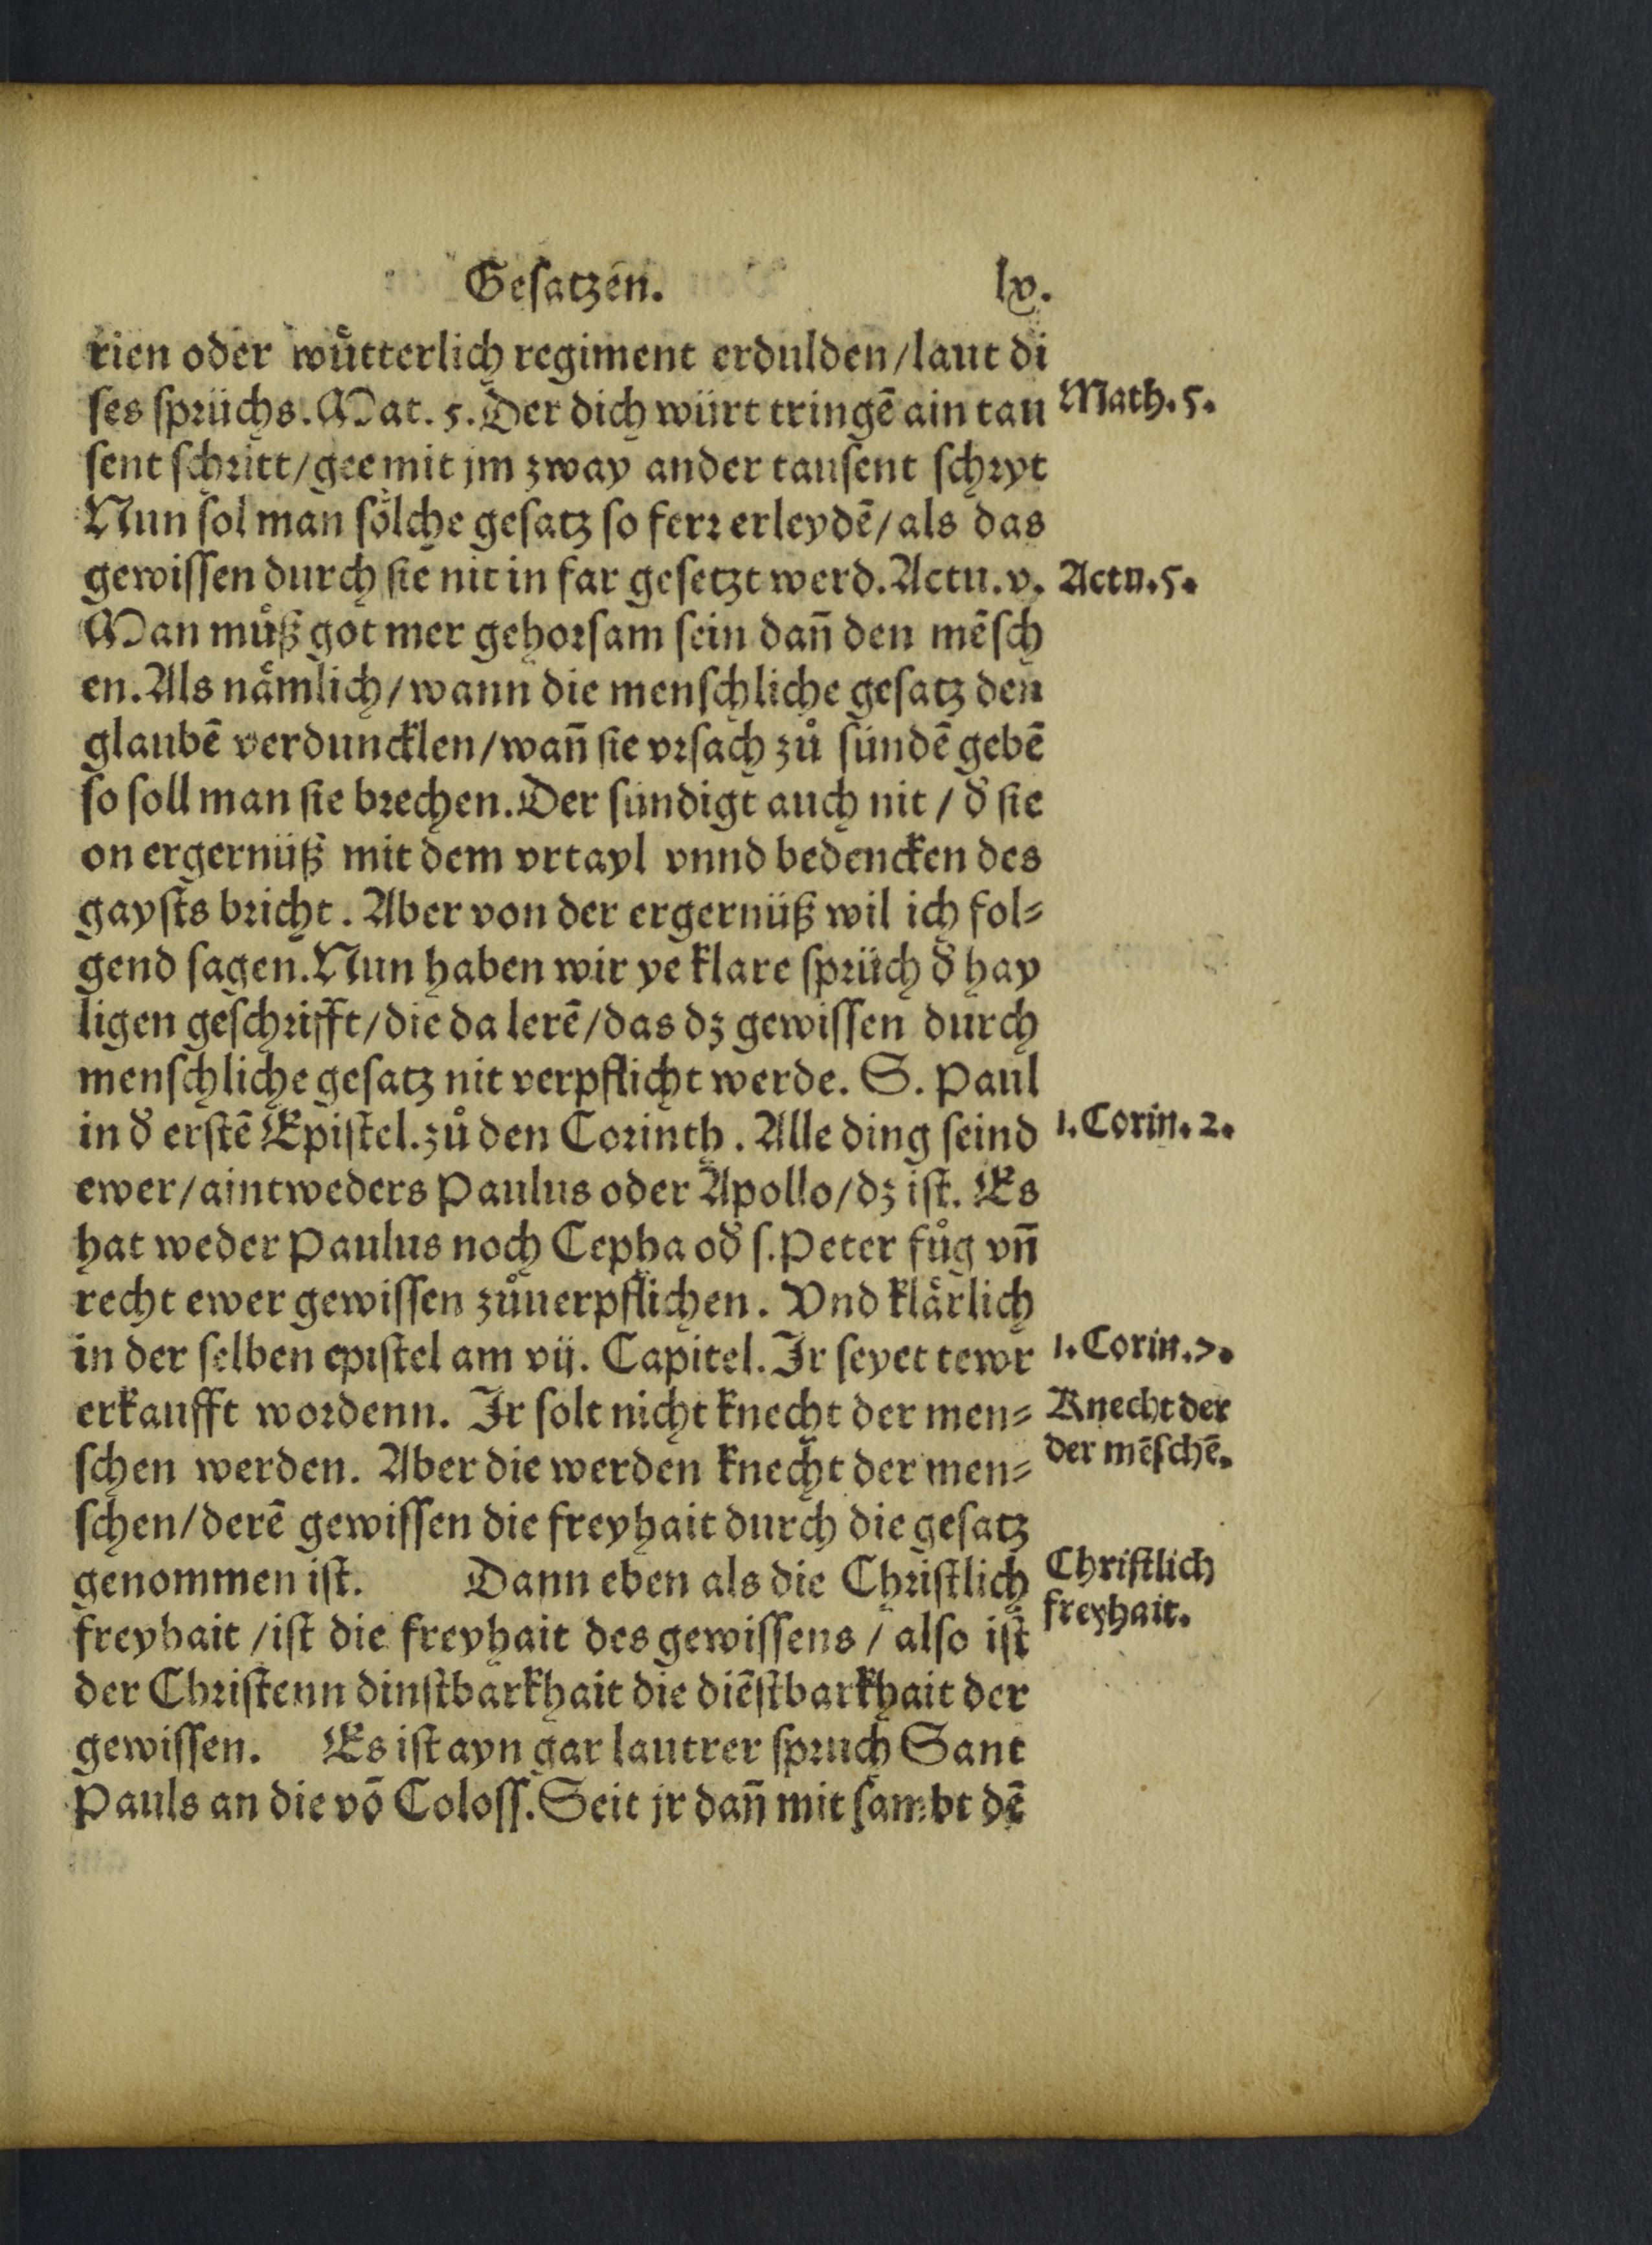 Gesatzen. lx.
rien oder wuͤtterlich regiment erdulden/laut di
ses sprüchs. Mat. 5. Der dich würt tringē ain tau
sent schritt/gee mit jm zway ander tausent schryt
Nun sol man soͤlche gesatz so ferr erleydē/als das
gewissen durch sie nit in far gesetzt werd. Actu. v.
Man muͦß got mer gehorsam sein dañ den mēsch
en. Als naͤmlich/wann die menschliche gesatz den
glaubē verduncklen/wañ sie vrsach zuͦ sündē gebē
so soll man sie brechen. Der sündigt auch nit/đ sie
on ergernüß mit dem vrtayl vnnd bedencken des
gaysts bricht. Aber von der ergernüß wil ich fol⸗
gend sagen. Nun haben wir ye klare sprüch đ hay
ligen geschrifft/die da lerē/das dz gewissen durch
menschliche gesatz nit verpflicht werde. S. Paul
in đ erstē Epistel. zuͦ den Corinth. Alle ding seind
ewer/aintweders Paulus oder Apollo/dz ist. Es
hat weder Paulus noch Cepha ođ s. Peter fuͦg vñ
recht ewer gewissen zuͦuerpflichen. Vnd klaͤrlich
in der selben epistel am vij. Capitel. Ir seyet tewr
erkaufft wordenn. Ir solt nicht knecht der men⸗
schen werden. Aber die werden knecht der men⸗
schen/derē gewissen die freyhait durch die gesatz
genommen ist. Dann eben als die Christlich
freyhait/ist die freyhait des gewissens/also ist
der Christenn dinstbarkhait die diēstbarkhait der
gewissen. Es ist ayn gar lautrer spruch Sant
Pauls an die vō Coloss. Seit jr dañ mit sambt dē
Math. 5.
Actu. 5.
1. Corin. 2.
1. Corin. 7.
Knecht der
der mēschē.
Christlich
freyhait.